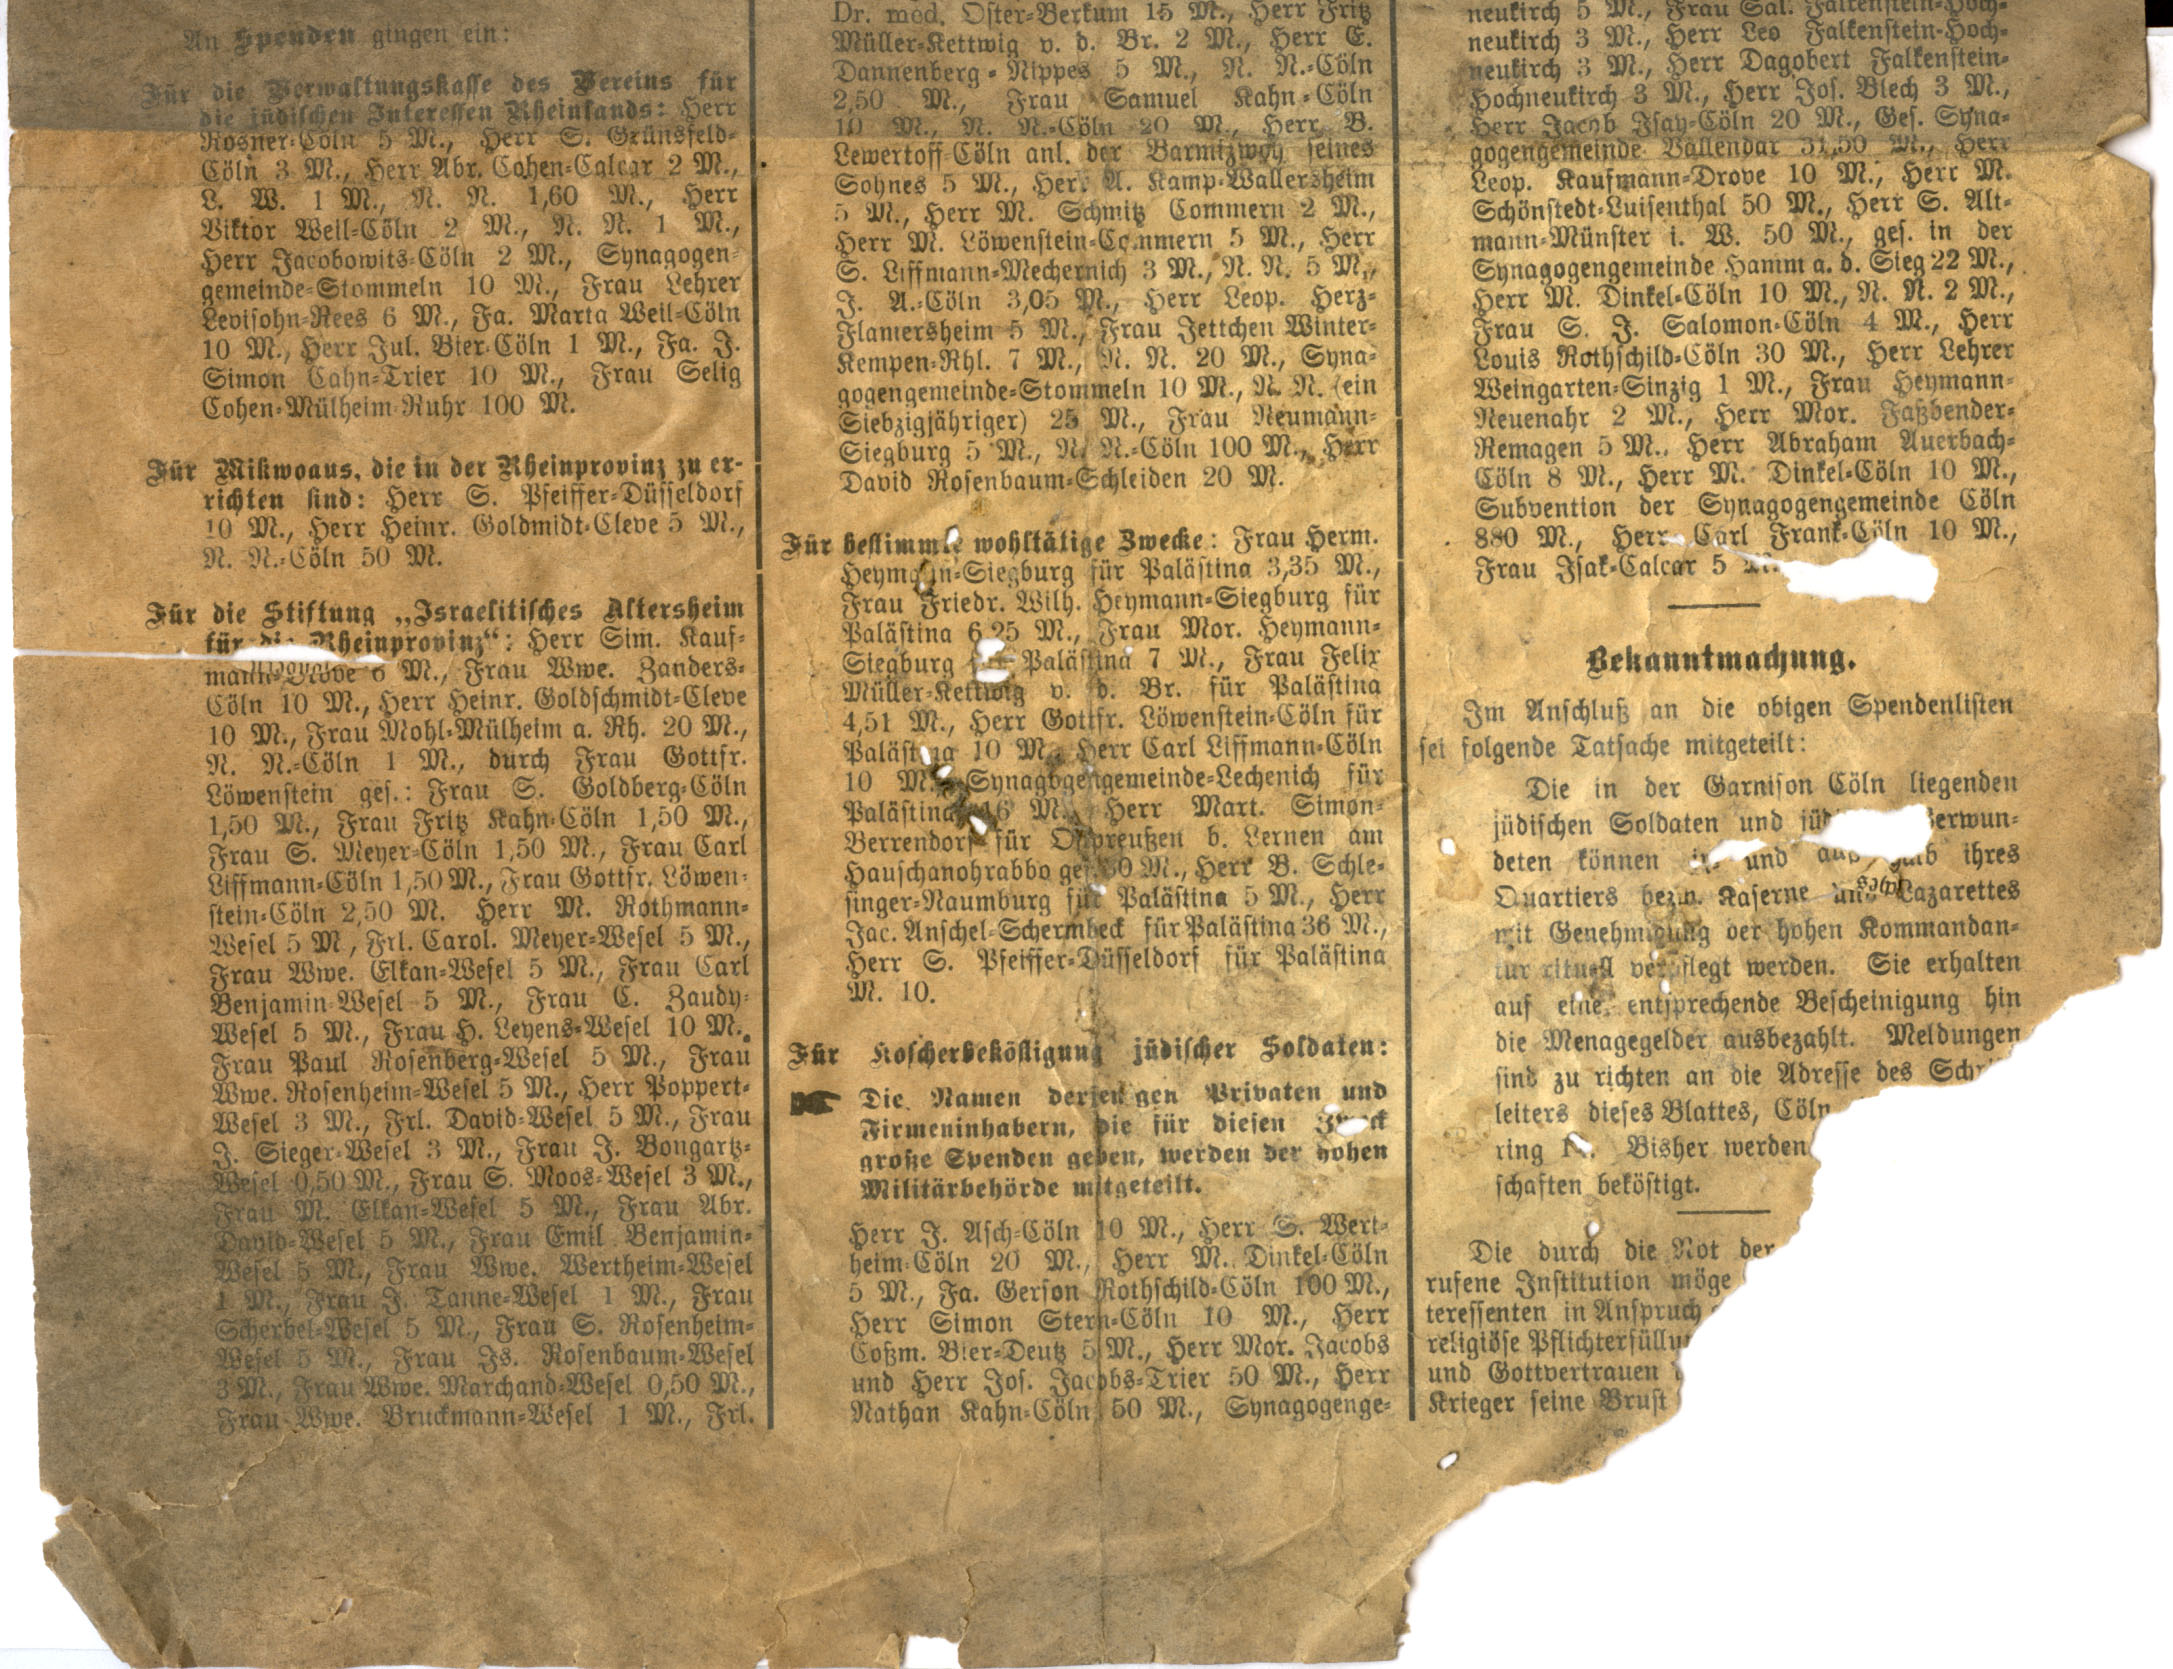 An Spenden gingen ein:
Für die Verwaltungskasse des Vereins für
die jüdischen Interessen Rheinlands: Herr
Rosner-Cöln 5 M., Herr S. Grünsfeld-
Cöln 3 M., Herr Abr. Cohen-Calcar 2 M.,
L. W. 1 M., N. N. 1,60 M., Herr
Viktor Weil-Cöln 2 M., N. N. 1 M.,
Herr Jacobowits-Cöln 2 M., Synagogen-
gemeinde-Stommeln 10 M., Frau Lehrer
Levisohn-Rees 6 M., Fa. Marta Weil-Cöln
10 M., Herr Jul. Bier-Cöln 1 M., Fa. J.
Simon Cahn-Trier 10 M., Frau Selig
Cohen-Mülheim-Ruhr 100 M.
Für Mikwoaus, die in der Rheinprovinz zu er-
richten sind: Herr S. Pfeiffer-Düsseldorf
10 M., Herr Heinr. Goldmidt-Cleve 5 M.,
N. N.-Cöln 50 M.
Für die Stiftung „Israelitisches Altersheim
für die Rheinprovinz“: Herr Sim. Kauf-
mann-Drove 6 M., Frau Wwe. Zanders-
Cöln 10 M., Herr Heinr. Goldschmidt-Cleve
10 M., Frau Mohl-Mülheim a. Rh. 20 M.,
N. N.-Cöln 1 M., durch Frau Gottfr.
Löwenstein ges.: Frau S. Goldberg-Cöln
1,50 M., Frau Fritz Kahn-Cöln 1,50 M.,
Frau S. Meyer-Cöln 1,50 M., Frau Carl
Liffmann-Cöln 1,50 M., Frau Gottfr. Löwen-
stein-Cöln 2,50 M. Herr M. Rothmann-
Wesel 5 M, Frl. Carol. Meyer-Wesel 5 M.,
Frau Wwe. Elkan-Wesel 5 M., Frau Carl
Benjamin-Wesel 5 M., Frau C. Zaudy-
Wesel 5 M., Frau H. Leyens-Wesel 10 M.
Frau Paul Rosenberg-Wesel 5 M., Frau
Wwe. Rosenheim-Wesel 5 M., Herr Poppert-
Wesel 3 M., Frl. David-Wesel 5 M., Frau
J. Sieger-Wesel 3 M., Frau J. Bongartz-
Wesel 0,50 M., Frau S. Moos-Wesel 3 M.,
Frau M. Elkan-Wesel 5 M., Frau Abr.
David-Wesel 5 M., Frau Emil Benjamin-
Wesel 5 M., Frau Wwe. Wertheim-Wesel
1 M., Frau J. Tanne-Wesel 1 M., Frau
Scherbel-Wesel 5 M., Frau S. Rosenheim-
Wesel 5 M., Frau Js. Rosenbaum-Wesel
3 M., Frau Wwe. Marchand-Wesel 0,50 M.,
Frau Wwe. Bruckmann-Wesel 1 M., Frl.
Dr. med. Oster-Berkum 15 M., Herr Fritz
Müller-Kettwig v. d. Br. 2 M., Herr E.
Dannenberg-Nippes 5 M., N. N.-Cöln
2,50 M., Frau Samuel Kahn-Cöln
10 M., N. N.-Cöln 20 M., Herr B.
Lewertoff-Cöln anl. der Barmizwoh seines
Sohnes 5 M., Herr A. Kamp-Wallersheim
5 M., Herr M. Schmitz Commern 2 M.,
Herr M. Löwenstein-Commern 5 M., Herr
S. Liffmann-Mechernich 3 M., N. N. 5 M.,
J. A.-Cöln 3,05 M., Herr Leop. Herz-
Flamersheim 5 M., Frau Jettchen Winter-
Kempen-Rhl. 7 M., N. N. 20 M., Syna-
gogengemeinde-Stommeln 10 M., N. N. (ein
Siebzigjähriger) 25 M., Frau Neumann-
Siegburg 5 M., N. N.-Cöln 100 M., Herr
David Rosenbaum-Schleiden 20 M.
Für bestimmte wohltätige Zwecke: Frau Herm.
Heymann-Siegburg für Palästina 3,35 M.,
Frau Friedr. Wilh. Heymann-Siegburg für
Palästina 6,25 M., Frau Mor. Heymann-
Siegburg Palästina 7 M., Frau Felix
Müller-Kettwig v. d. Br. für Palästina
4,51 M., Herr Gottfr. Löwenstein-Cöln für
Palästina 10 M., Herr Carl Liffmann-Cöln
10 M., Synagogengemeinde-Lechenich für
Palästina 16 M., Herr Mart. Simon-
Berrendorf für Ostpreußen b. Lernen am
Hauschanohrabbo ges. 30 M., Herr B. Schle-
singer-Naumburg für Palästina 5 M., Herr
Jac. Anschel-Schermbeck für Palästina 36 M.,
Herr S. Pfeiffer-Düsseldorf für Palästina
M. 10.
Für Koscherbeköstigung jüdischer Soldaten:
Die Namen derjenigen Privaten und
Firmeninhabern, die für diesen Zweck
große Spenden geben, werden der hohen
Militärbehörde mitgeteilt.
Herr J. Asch-Cöln 10 M., Herr S. Wert-
heim-Cöln 20 M., Herr M. Dinkel-Cöln
5 M., Fa. Gerson Rothschild-Cöln 100 M.,
Herr Simon Stern-Cöln 10 M., Herr
Coßm. Bier-Deutz 5 M., Herr Mor. Jacobs
und Herr Jos. Jacobs-Trier 50 M., Herr
Nathan Kahn-Cöln 50 M., Synagogenge-
neukirch 5 M., Frau Sal. Falkenstein-Hoch-
neukirch 3 M., Herr Leo Falkenstein-Hoch-
neukirch 3 M., Herr Dagobert Falkenstein-
Hochneukirch 3 M., Herr Jos. Blech 3 M.,
Herr Jacob Isay-Cöln 20 M., Ges. Syna-
gogengemeinde Vallendar 31,50 M., Herr
Leop. Kaufmann-Drove 10 M., Herr M.
Schönstedt-Luisenthal 50 M., Herr S. Alt-
mann-Münster i. W. 50 M., ges. in der
Synagogengemeinde Hamm a. d. Sieg 22 M.,
Herr M. Dinkel-Cöln 10 M., N. N. 2 M.,
Frau S. J. Salomon-Cöln 4 M., Herr
Louis Rothschild-Cöln 30 M., Herr Lehrer
Weingarten-Sinzig 1 M., Frau Heymann-
Neuenahr 2 M., Herr Mor. Faßbender-
Remagen 5 M., Herr Abraham Auerbach-
Cöln 8 M., Herr M. Dinkel-Cöln 10 M.,
Subvention der Synagogengemeinde Cöln
880 M., Herr Carl Frank-Cöln 10 M.,
Frau Isak-Calcar 5 M.
Bekanntmachung.
Im Anschluß an die obigen Spendenlisten
sei folgende Tatsache mitgeteilt:
Die in der Garnison Cöln liegenden
jüdischen Soldaten und jüd Verwun-
deten können in- und außerhalb ihres
Quartiers bezw. Kaserne und Lazarettes
mit Genehmigung der hohen Kommandan-
tur rituell verpflegt werden. Sie erhalten
auf eine entsprechende Bescheinigung hin
die Menagegelder ausbezahlt. Meldungen
sind zu richten an die Adresse des Schri
leiters dieses Blattes, Cöln
ring Bisher werden
schaften beköstigt.
Die durch die Not der
rufene Institution möge
teressenten in Anspruch
religiöse Pflichterfüllu
und Gottvertrauen
Krieger seine Brust